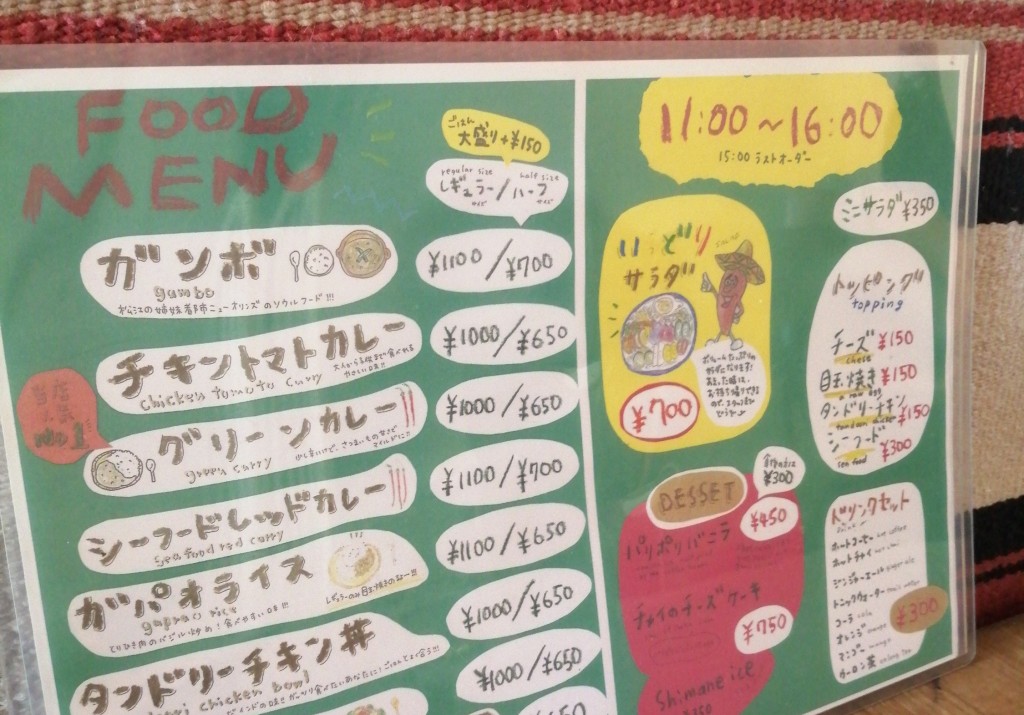 FOOD
MENU
ごはん
大盛り+¥150
regular size half size
レギュラー/ハーフ
サイズ サイズ
ガンボ
gumbo
松江の姉妹都市ニューオリンズのソウルフード!!!
¥1100/¥700
チキントマトカレー
chicken tomato curry
¥1000/¥650
当店
人気
no1
グリーンカレー
green curry
¥1000/¥650
シーフードレッドカレー
Sea food red curry
¥1100/¥700
ガパオライス
gaprao rice
とりひき肉のバジル炒め!食べやすい口味!!!
¥1100/¥650
¥1000/¥650
タンドリーチキン丼
chicken bowl
¥1000/¥650
¥650
11:00~16:00
15:00 ラストオーダー
いろどり
サラダ
¥700
ミニサラダ¥350
トッピング
topping
チーズ ¥150
cheese
目玉焼き ¥150
タンドリーチキン
¥150
シーフード
sea food
¥300
DESSET
¥300
¥450
パリポリバニラ
チャイのチーズケーキ
¥750
Shimane ice
¥350
ドリンクセット
ホットコーヒー hot coffee
ホットチャイ
ジンジャーエール ginger ale
トニックウォーター tonic water
コーラ cola
オレンジ orange
マンゴー mango
ウーロン茶 oolong tea
¥300